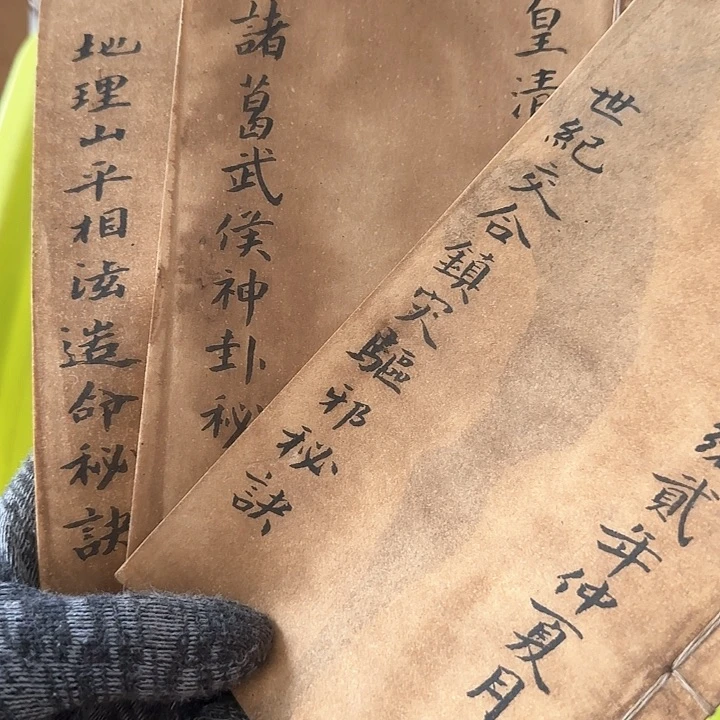 地理山平相法造命秘訣
諸葛武侯神卦秘
皇清
世紀交合鎮穴驅邪秘訣
貳年仲夏月